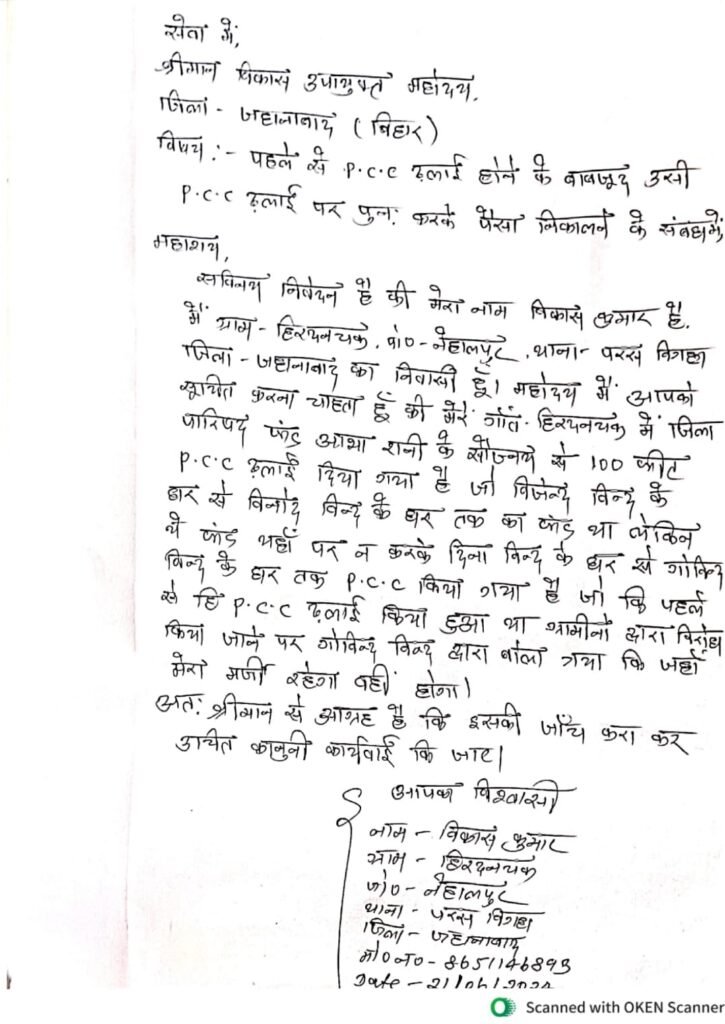 सेवा में,
श्रीमान विकास उपायुक्त महोदय,
जिला - जहानाबाद (बिहार)
विषय :- पहले से P.C.C ढ़लाई होने के बावजूद उसी
P.C.C ढ़लाई पर पुनः करके पैसा निकालने के संबंध में,
महाशय,
सविनय निवेदन है की मेरा नाम विकास कुमार है,
मैं ग्राम - हिरदनचक, पो० - नेहालपुर, थाना - परस बिगहा
जिला - जहानाबाद का निवासी हूँ। महोदय मैं आपको
सूचित करना चाहता हूँ की मेरे गाँव - हिरदनचक में जिला
पारिषद फंड आभा रानी के सौजन्य से 100 फीट
P.C.C ढ़लाई दिया गया है जो विजेन्द विन्द के
घर से विनोद विन्द के घर तक का फंड था लेकिन
ये फंड यहाँ पर न करके दिना विन्द के घर से गोविन्द
विन्द के घर तक P.C.C किया गया है जो कि पहले
से हि P.C.C ढ़लाई किया हुआ था ग्रामीनों द्वारा विरोध
किया जाने पर गोविन्द विन्द द्वारा बोला गया कि जहाँ
मेरा मर्जी रहेगा वहीं होगा।
अतः श्रीमान से आग्रह है कि इसकी जाँच करा कर
उचित कानुनी कार्यवाई कि जाए।
आपका विश्वासी
नाम - विकास कुमार
ग्राम - हिरदनचक
पो० - नेहालपुर
थाना - परस बिगहा
जिला - जहानाबाद
मो० न० - 8651146893
Date - 21/06/2024
Scanned with OKEN Scanner